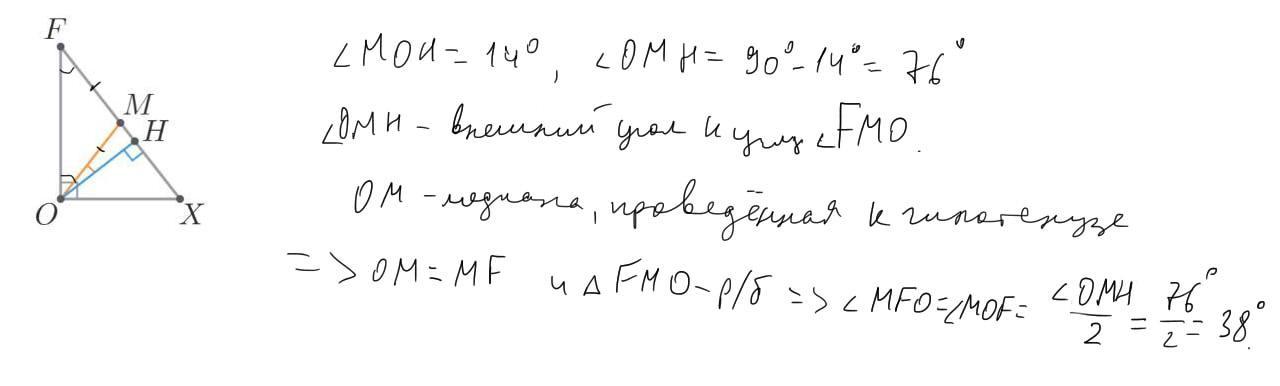 F
M
H
O
X
∠MOH = 14°, ∠OMH = 90° - 14° = 76°
∠OMH - внешний угол к углу ∠FMO.
OM - медиана, проведённая к гипотенузе
=> OM = MF и △FMO - р/б => ∠MFO = ∠MOF = ∠OMH/2 = 76°/2 = 38°.